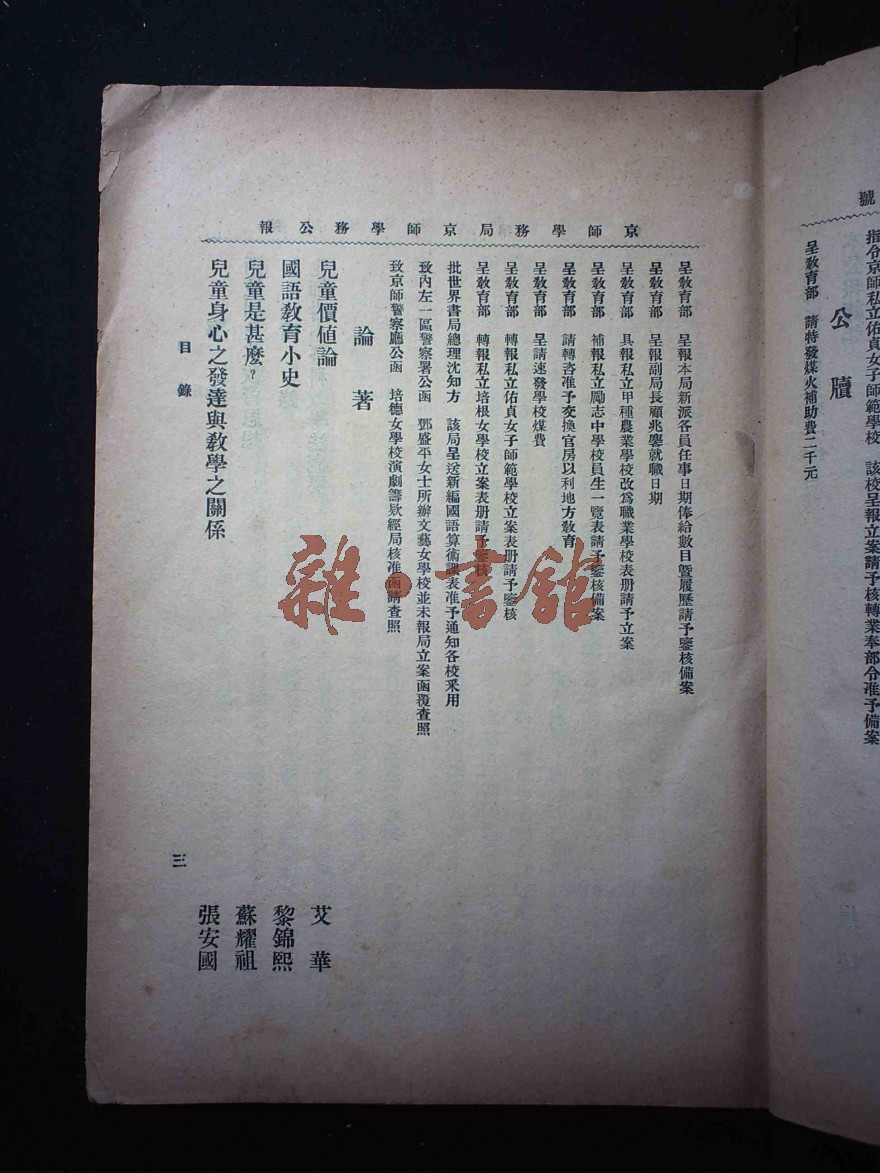 號
指令京師私立佑貞女子師範學校 該校呈報立案請予核轉業奉部令准予備案
公牘
呈教育部 請特發煤火補助費二千元
京師學務局京師學務公報
呈教育部 呈報本局新派各員任事日期俸給數目暨履歷請予鑒核備案
呈教育部 呈報副局長顧兆麐就職日期
呈教育部 具報私立甲種農業學校改爲職業學校表册請予立案
呈教育部 補報私立勵志中學校員生一覽表請予鑒核備案
呈教育部 請轉咨准予交換官房以利地方教育
呈教育部 呈請速發學校煤費
呈教育部 轉報私立佑貞女子師範學校立案表册請予鑒核
呈教育部 轉報私立培根女學校立案表册請予鑒核
批世界書局總理沈知方 該局呈送新編國語算術課表准予通知各校采用
致內左一區警察署公函 鄧盛平女士所辦文藝女學校並未報局立案函覆查照
致京師警察廳公函 培德女學校演劇籌欵經局核准函請查照
論著
兒童價值論 艾華
國語教育小史 黎錦熙
兒童是甚麼？ 蘇耀祖
兒童身心之發達與教學之關係 張安國
目錄
三
雜·書館